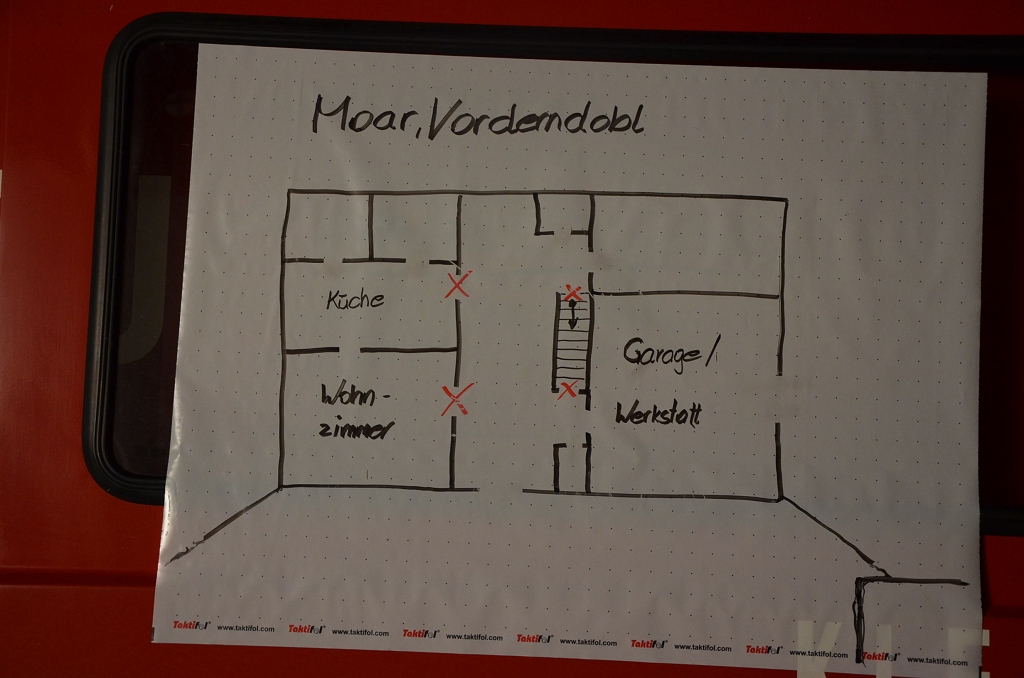 Moar, Vorderndobl
Küche
Garage/
Wohn-
zimmer
Werkstatt
Taktifol www.taktifol.com Taktifol www.taktifol.com Taktifol www.taktifol.com Taktifol www.taktifol.com Taktifol www.taktifol.com Taktifol www.taktifol.com Taktifol www.taktifol.com
KLF